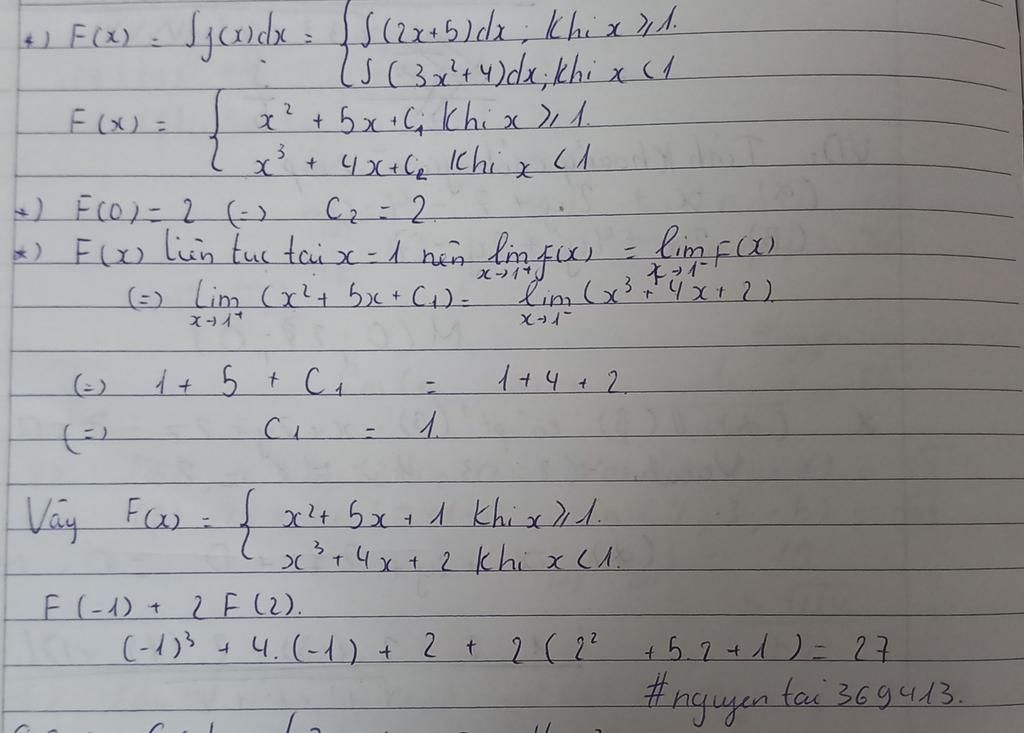 *) F(x) = ∫f(x)dx = { ∫(2x+5)dx ; khi x ⩾ 1.
∫(3x²+4)dx; khi x < 1
F(x) = { x² + 5x + C₁ khi x ⩾ 1.
x³ + 4x + C₂ khi x < 1
*) F(0) = 2 (=) C₂ = 2
*) F(x) liên tục tại x = 1 nên lim f(x) = lim F(x)
x→1⁺ x→1⁻
(=) lim (x² + 5x + C₁) = lim (x³ + 4x + 2)
x→1⁺ x→1⁻
(=) 1 + 5 + C₁ = 1 + 4 + 2
(=) C₁ = 1.
Vậy F(x) = { x² + 5x + 1 khi x ⩾ 1.
x³ + 4x + 2 khi x < 1.
F(-1) + 2F(2).
(-1)³ + 4.(-1) + 2 + 2(2² + 5.2 + 1) = 27
#nguyen tai 369413.